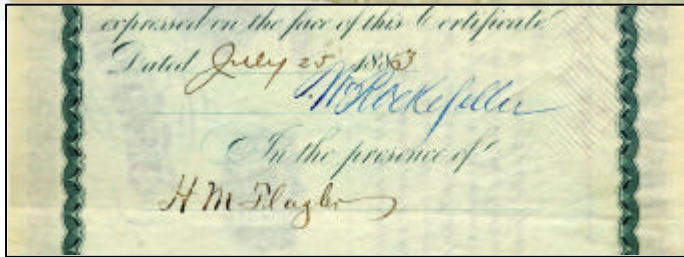 expressed on the face of this Certificate
Dated July 25 1883
Wm Rockefeller
In the presence of
H M Flagler